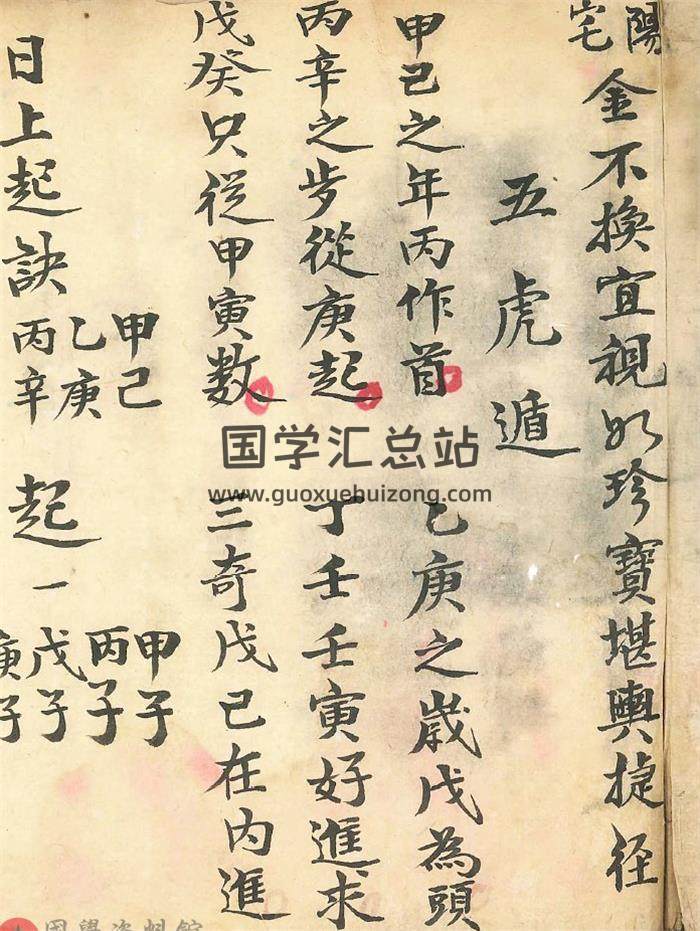 陽宅金不換宜視如珍寶堪輿捷径
五虎遁
甲己之年丙作首 乙庚之歲戊為頭
丙辛之步從庚起 丁壬壬寅好進求
戊癸只從甲寅數 三奇戊己在内進
日上起訣
甲己
乙庚
丙辛
起一
甲子
丙子
戊子
庚子
国学汇总站
www.guoxuehuizong.com
国學資料館